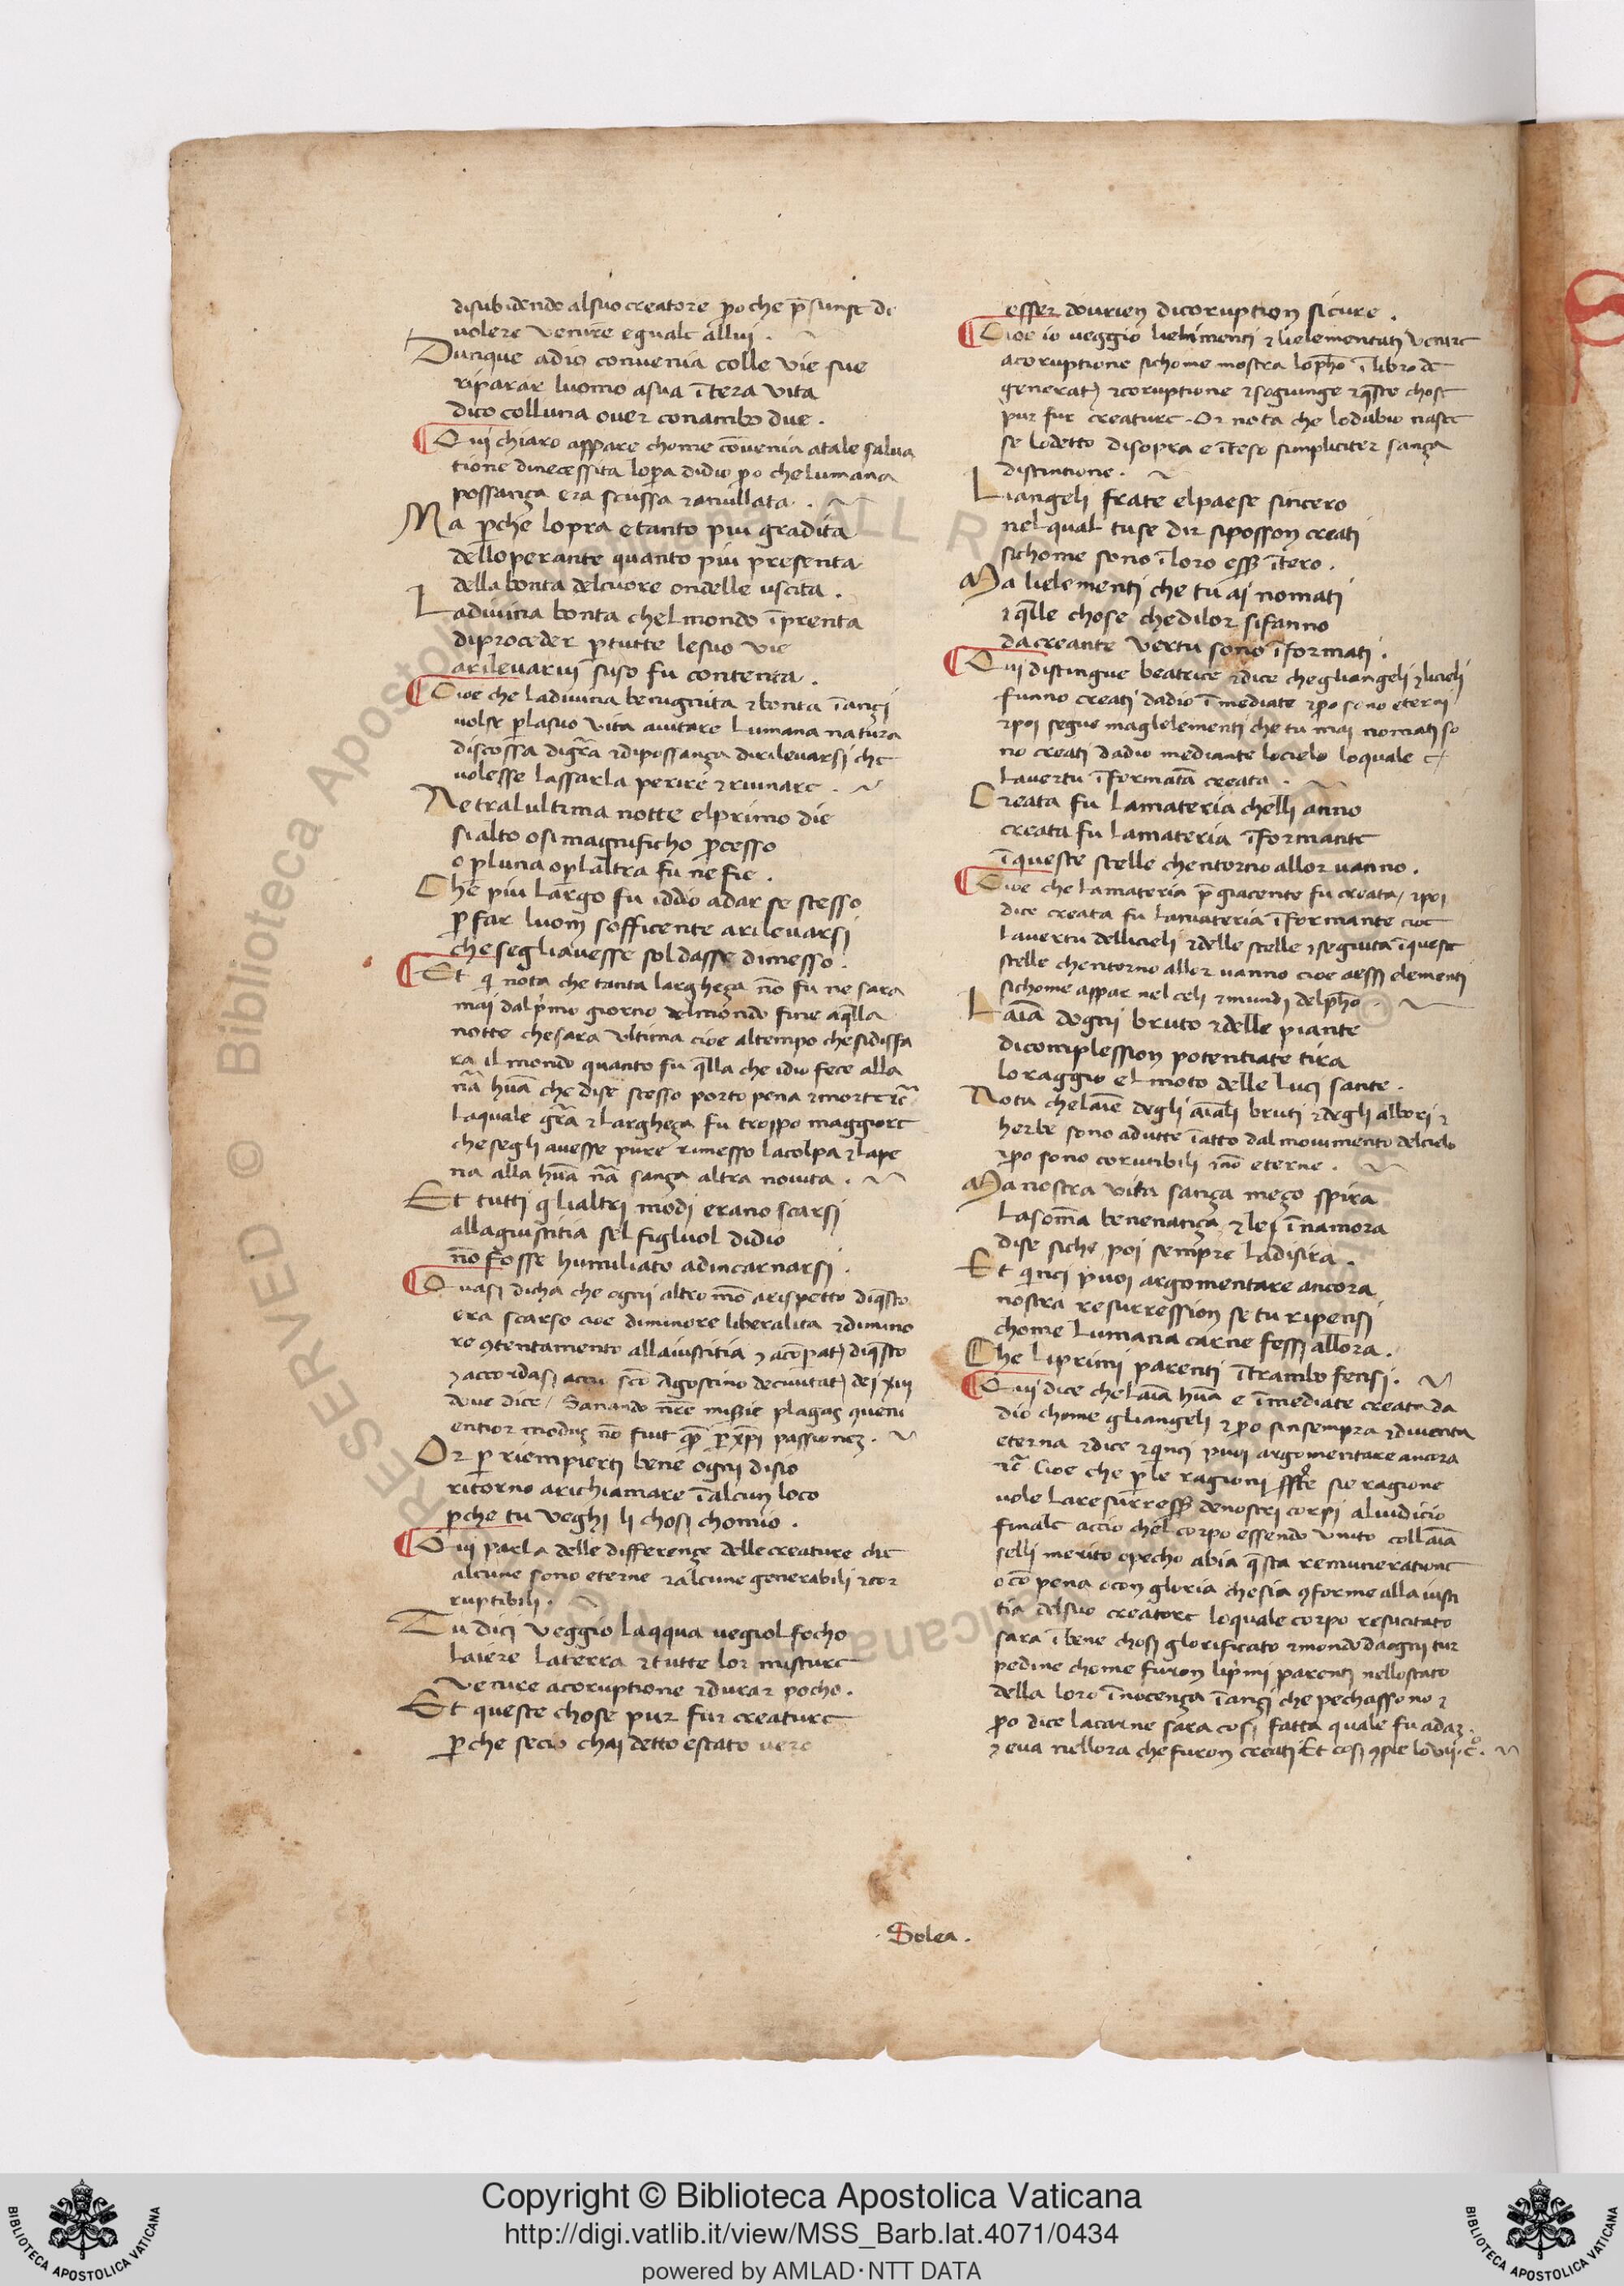 disubidendo alsuo creatore po che p̄sunse di
volere venire eguale allui.
Dunque adio convenia colle vie sue
riparar luomo asua ītera vita
dico colluna over conambo due.
Qui chiaro appare chome cōvenia atale salva
tione dinecessita lopa didio po che lumana
possança era scussa ⁊anullata.
Ma pche lopra e tanto piu gradita
delloperante quanto piu presenta
della bonta delcuore ondelle uscita.
Ladivina bonta chel mondo īprenta
diproceder ptutte lesue vie
arilevarvi suso fu contenta.
Cioe che ladivina benignita ⁊bonta īançi
volse plasuo vita aiutare lumana natura
discossa digr̄a ⁊dipossança dirilevarsi che
volesse lassarla perire ⁊ruinare.
Ne tralultima notte elprimo die
si alto o si magnificho pcesso
o pluna o plaltra fu ne fie.
Che piu largo fu iddio adar se stesso
p far luom sofficente arilevarsi
che segliavesse sol dasse dimesso.
Et qi nota che tanta largheça nō fu ne sara
mai dalpimo giorno delmondo fine aqlla
notte chesara ultima cioe altempo chesidisfa
ra il mondo quanto fu qlla che idio fece alla
nā huā che dise stesso porto pena ⁊morte ⁊c̄
laquale gr̄a ⁊largheça fu troppo maggiore
chesegli avesse pure rimesso lacolpa ⁊lape
na alla huā nā sança altra novita.
Et tutti qlialtri modi erano scarsi
allagiustitia sel figluol didio
nō fosse humiliato adincarnarsi.
Quasi dicha che ogni altro mō arispetto diqsto
era scarso cioe diminore liberalita ⁊dimino
re ꝯtentamento allaiustitia ⁊ acōpat) diqsto
⁊ accordasi accio scō Agostino decivitat) dei xiii
dove dice / Sanando nr̄e miserie plagas ꝯveni
entior modus nō fuit qm̄ p xp̄i passionez.
Or p riempierti bene ogni disio
ritorno arichiamare īalcun loco
pche tu veghi li chosi chomio.
Qui parla delle differençe delle creature che
alcune sono eterne ⁊alcune generabili ⁊cor
ruptibili.
Tu dici veggio laqqua vegiol focho
laiere laterra ⁊tutte lor misture
venire acoruptione ⁊durar pocho.
Et queste chose pur fur creature
p che secio chai detto e stato vero
esser dovrien dicoruption sicure.
Cioe io veggio lielimenti ⁊ lielementati venire
acoruptione sichome mostra lopħo ī libro de
generat) ⁊coruptione ⁊sogiunge ⁊qste chose
pur fur creature. Or nota che lodubio nasce
se lodetto disopra e īteso simpliciter sança
distintione.
Liangeli frate elpaese sincero
nel qual tuse dir sipossон creati
sichome sono ī loro esser ītero.
Ma lielementi che tu ai nomati
⁊qlle chose chedilor sifanno
dacreante vertu sono īformati.
Qui distingue beatrice ⁊dice chegliangeli ⁊licieli
funno creati dadio īmediate ⁊po sono eterni
⁊poi segue maglelementi che tu mai nomati so
no creati dadio mediante locielo loquale e
lavertu īformata creata.
Creata fu lamateria chelli āno
creata fu lamateria īformante
īqueste stelle chentorno allor vanno.
Cioe che lamateria p̄giacente fu creata / ⁊poi
dice creata fu lamateria īformante cioe
lavertu dellicieli ⁊delle stelle ⁊seguita īqueste
stelle chentorno allor vanno cioe aessi elementi
sichome appar nel celi ⁊mundi delpħo.
Laīa dogni bruto ⁊delle piante
dicomplession potentiate tira
lo raggio el moto delle luci sante.
Nota chelaīe degli aīali bruti ⁊degli albori ⁊
herbe sono adutte īatto dal movimento delcielo
⁊po sono corutibili ⁊nō eterne.
Ma nostra vita sança meço spira
lasoma benenança ⁊ lei īnamora
dise siche poi sempre ladisira.
Et qinci puoi argomentare ancora
nostra resurression se tu ripensi
chome lumana carne fessi allora.
Che liprimi parenti ītrambo fensi.
Qui dice chelaīa huā e īmediate creata da
dio chome gliangeli ⁊ po sinsempra ⁊diventa
eterna ⁊dice ⁊qinci puoi argomentare ancora
⁊c̄ Cioe che p le ragioni sie ragione
vole laresurress denostri corpi aluidicio
finale accio chel corpo essendo unito collaīa
selli merito opecho abia qsta remuneratione
o cō pena ocon gloria chesia ꝯforme alla iusti
tia delsuo creatore loquale corpo resucitato
sara ī bene chosi glorificato ⁊mondo daogni tur
pedine chome furon lipimi parenti nellostato
della loro īnocença īançi che pechassono ⁊
po dice lacarne sara cosi fatta quale fu adaz
⁊ eva nellora che furon creati Et cosi ꝯpie lo vii. co.
Solea.
Copyright © Biblioteca Apostolica Vaticana
http://digi.vatlib.it/view/MSS_Barb.lat.4071/0434
powered by AMLAD·NTT DATA
BIBLIOTECA APOSTOLICA VATICANA
BIBLIOTECA APOSTOLICA VATICANA